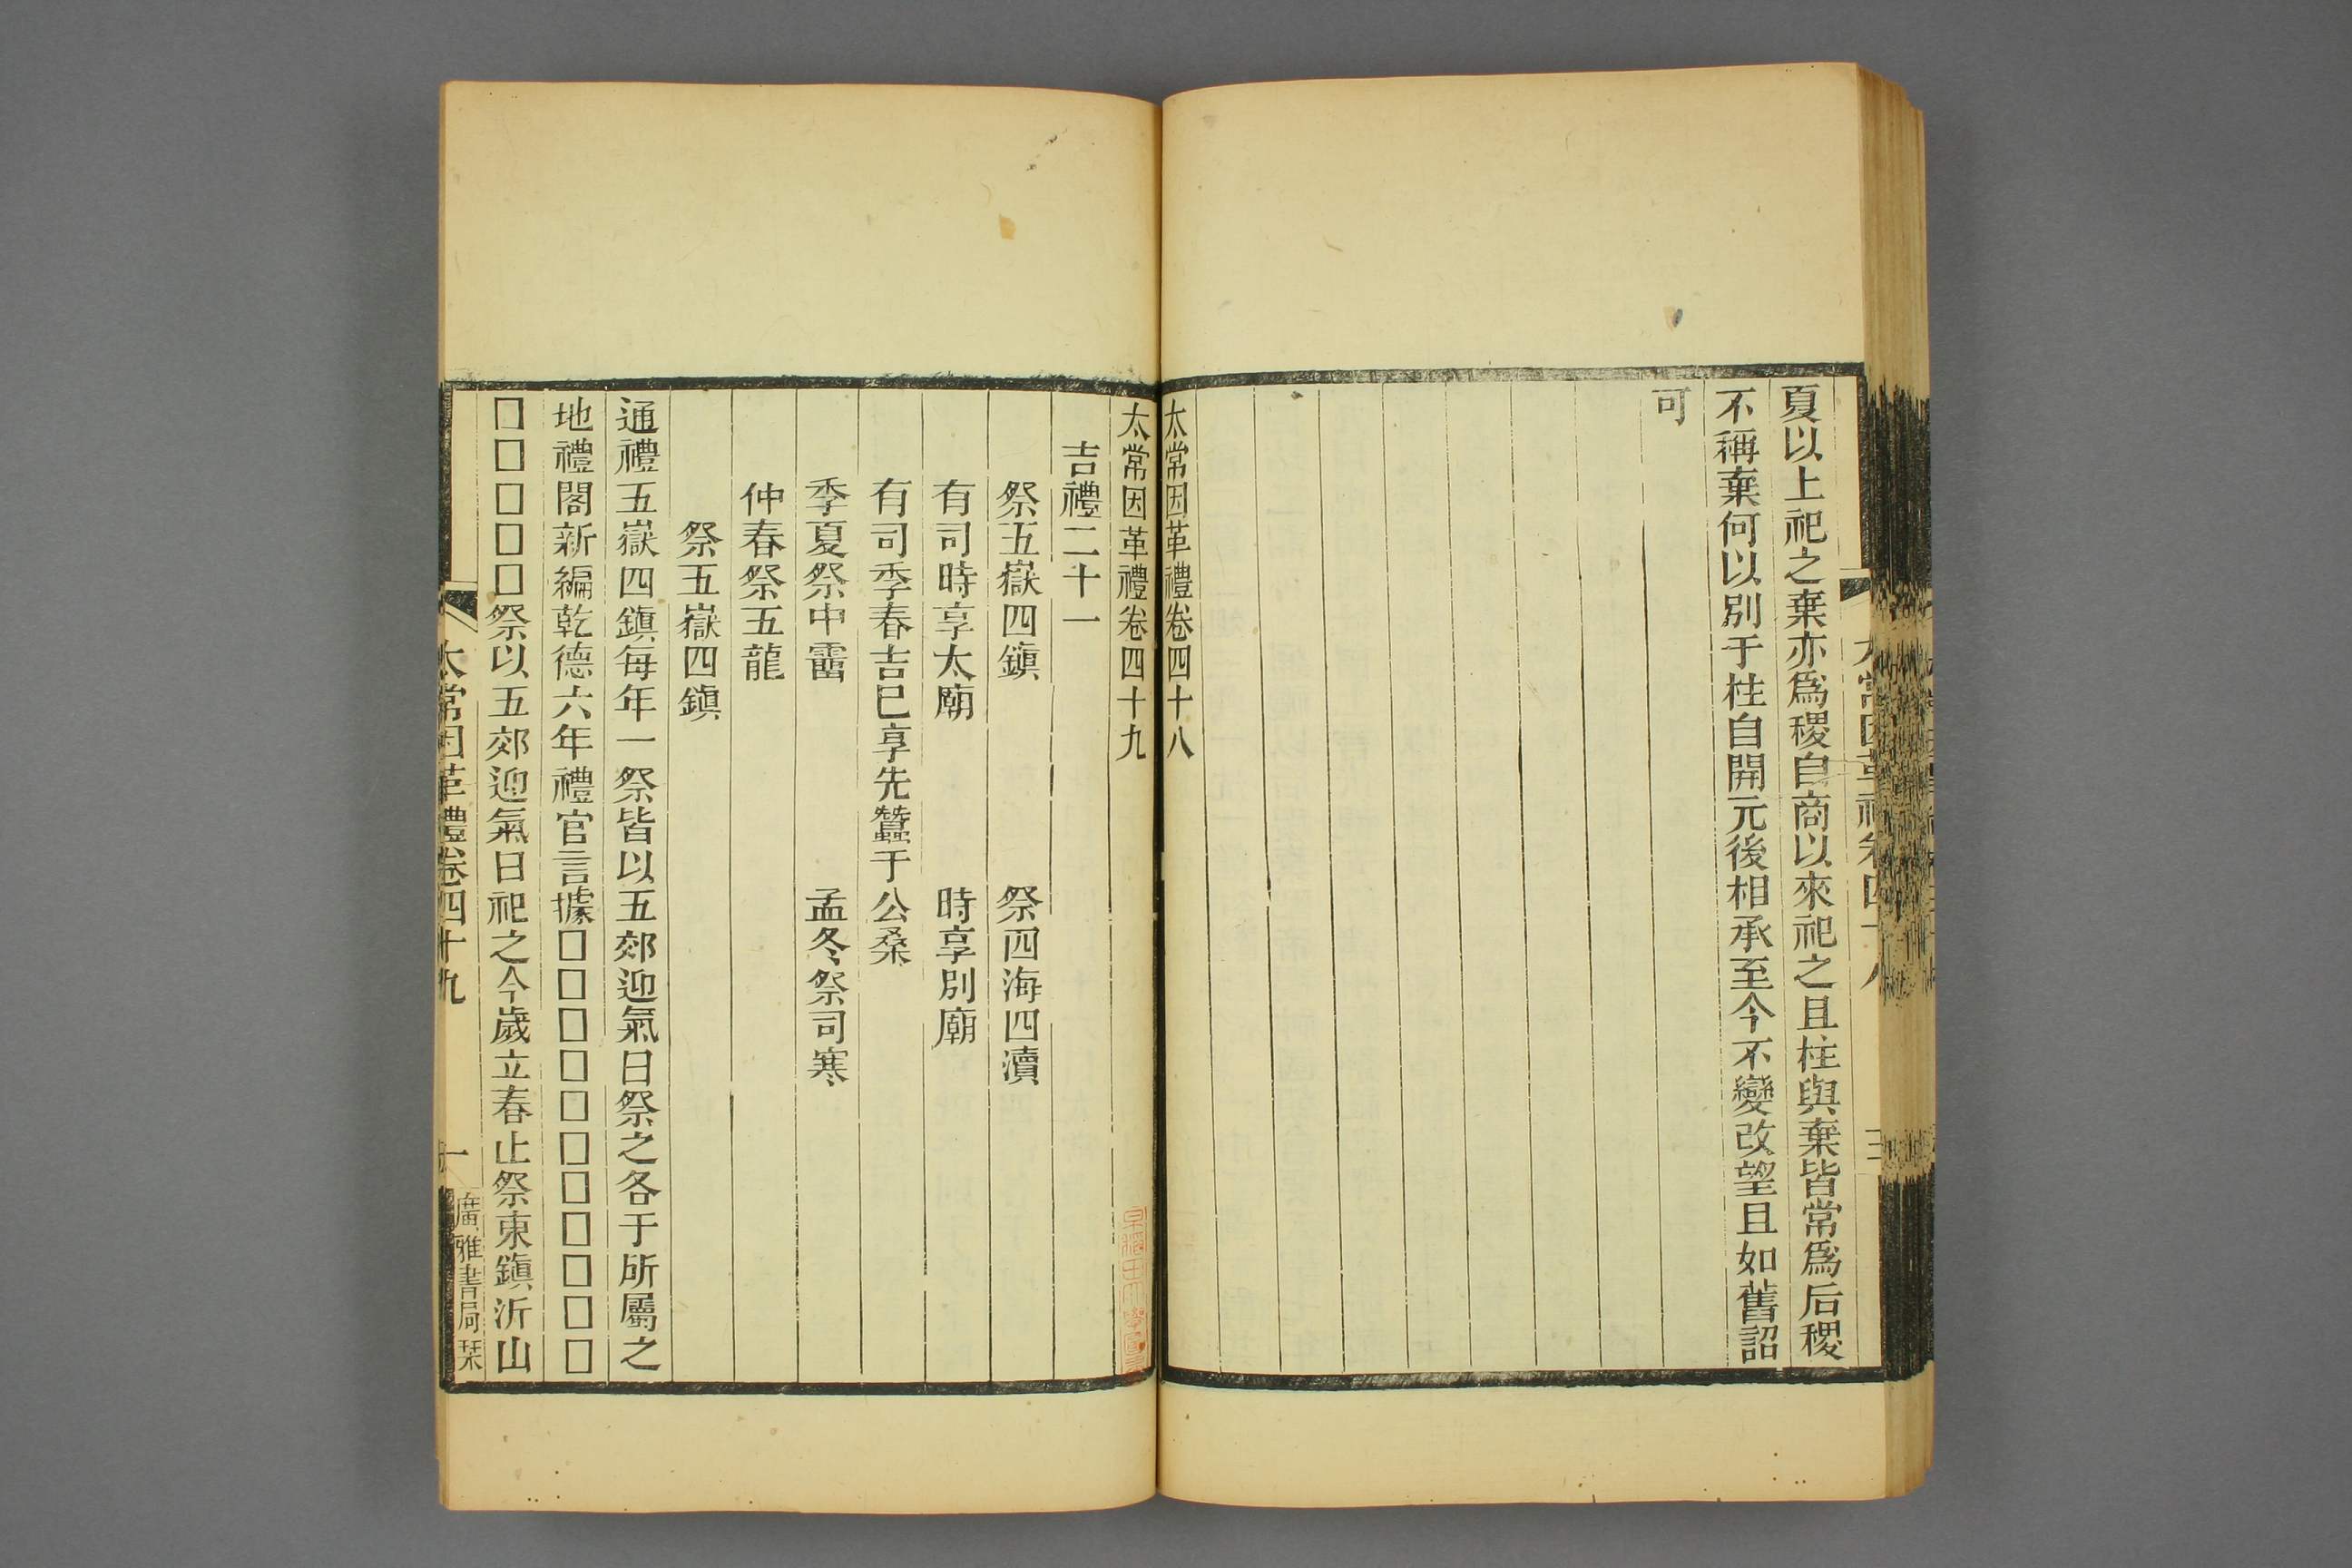 夏以上祀之棄亦爲稷自商以來祀之且柱與棄皆常爲后稷
不稱棄何以別于柱自開元後相承至今不變改望且如舊詔
可
太常因革禮卷四十八
太常因革禮卷四十九
吉禮二十一
祭五嶽四鎭 祭四海四瀆
有司時享太廟 時享別廟
有司季春吉巳享先蠶于公桑
季夏祭中霤 孟冬祭司寒
仲春祭五龍
祭五嶽四鎭
通禮五嶽四鎭每年一祭皆以五郊迎氣日祭之各于所屬之
地禮閣新編乾德六年禮官言據□□□□□□□□□□□
□□□□□祭以五郊迎氣日祀之今歲立春止祭東鎭沂山
太常因革禮卷四十九
一
廣雅書局栞